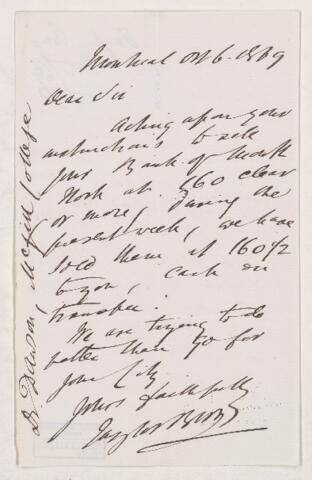 Montreal Oct 6. 1869
Dear Sir
Acting upon your
instructions to sell
your Bank of Montl
Stock at 160 clear
or more, during the
present week, we have
sold them at 160 1/2
to you, cash on
transfer.
We are trying to do
better than 90 for
your City.
Yours faithfully
Taylor Bros
Dr. Dawson, McGill College